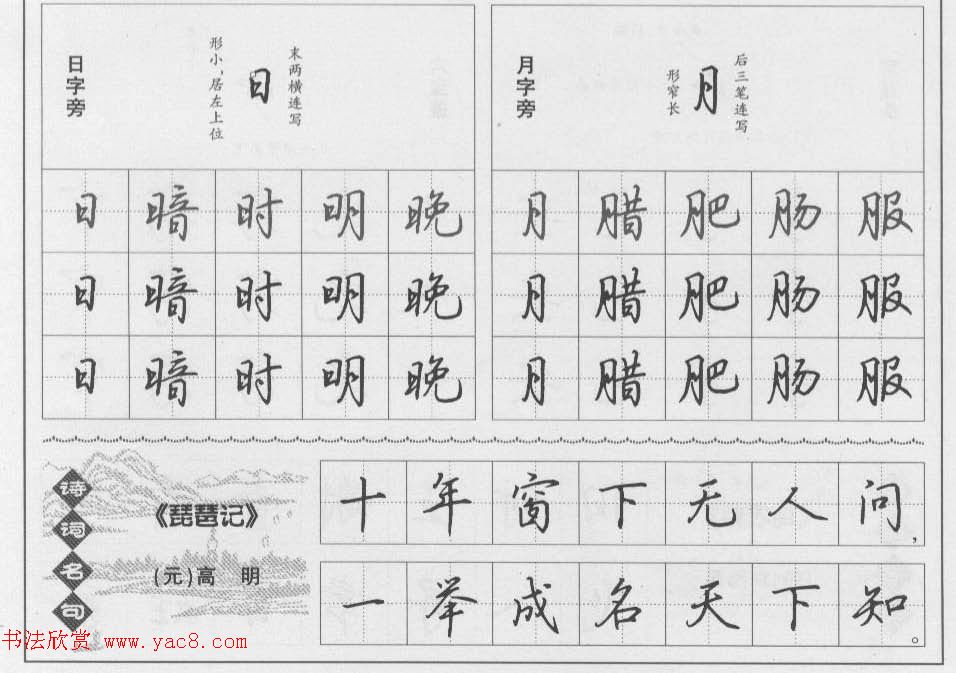 日字旁
形小，居左上位
日
末两横连写
月字旁
形窄长
月
后三笔连写
日 暗 时 明 晚
月 腊 肥 肠 服
日 暗 时 明 晚
月 腊 肥 肠 服
日 暗 时 明 晚
月 腊 肥 肠 服
诗词名句
《琵琶记》
(元)高 明
十年窗下无人问，
一举成名天下知。
书法欣赏 www.yac8.com